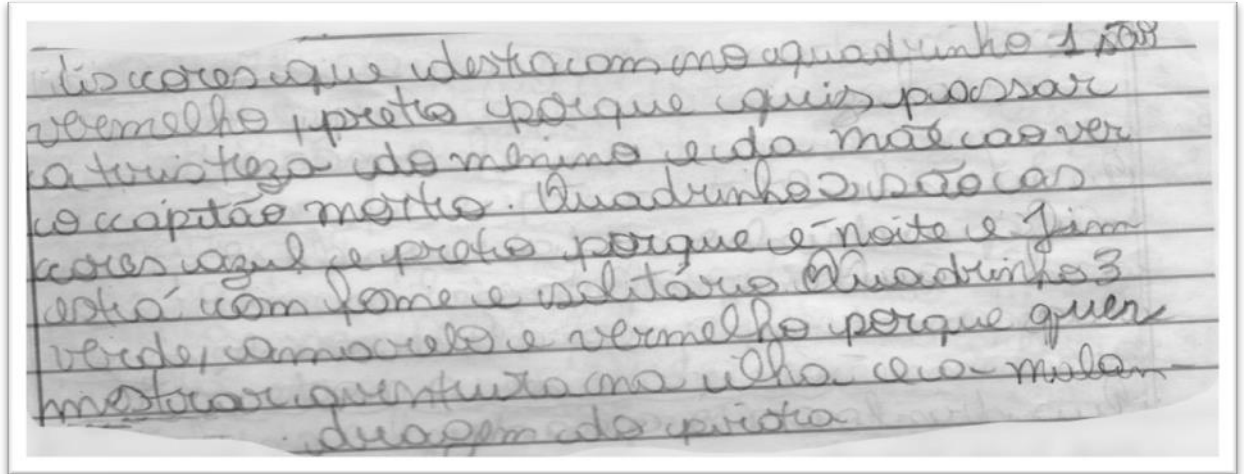 As cores que destacam no quadrinho 1 são
vermelho, preto porque quis passar
a tristeza do menino e da mãe ao ver
o capitão morto. Quadrinho 2 são as
cores azul e preto porque é noite e Jim
está com fome e solitário Quadrinho 3
verde, amarelo e vermelho porque quer
mostrar quentura na ilha e a malan-
dragem do pirata